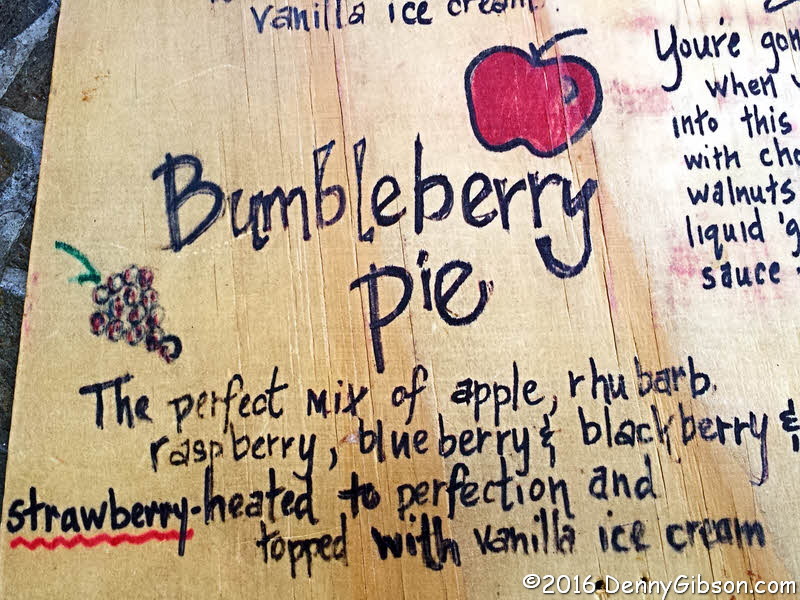 vanilla ice cream.
Bumbleberry
pie
The perfect mix of apple, rhubarb.
raspberry, blueberry & blackberry &
strawberry-heated to perfection and
topped with vanilla ice cream
You're
when
into this
with
walnuts
liquid
sauce
©2016 DennyGibson.com